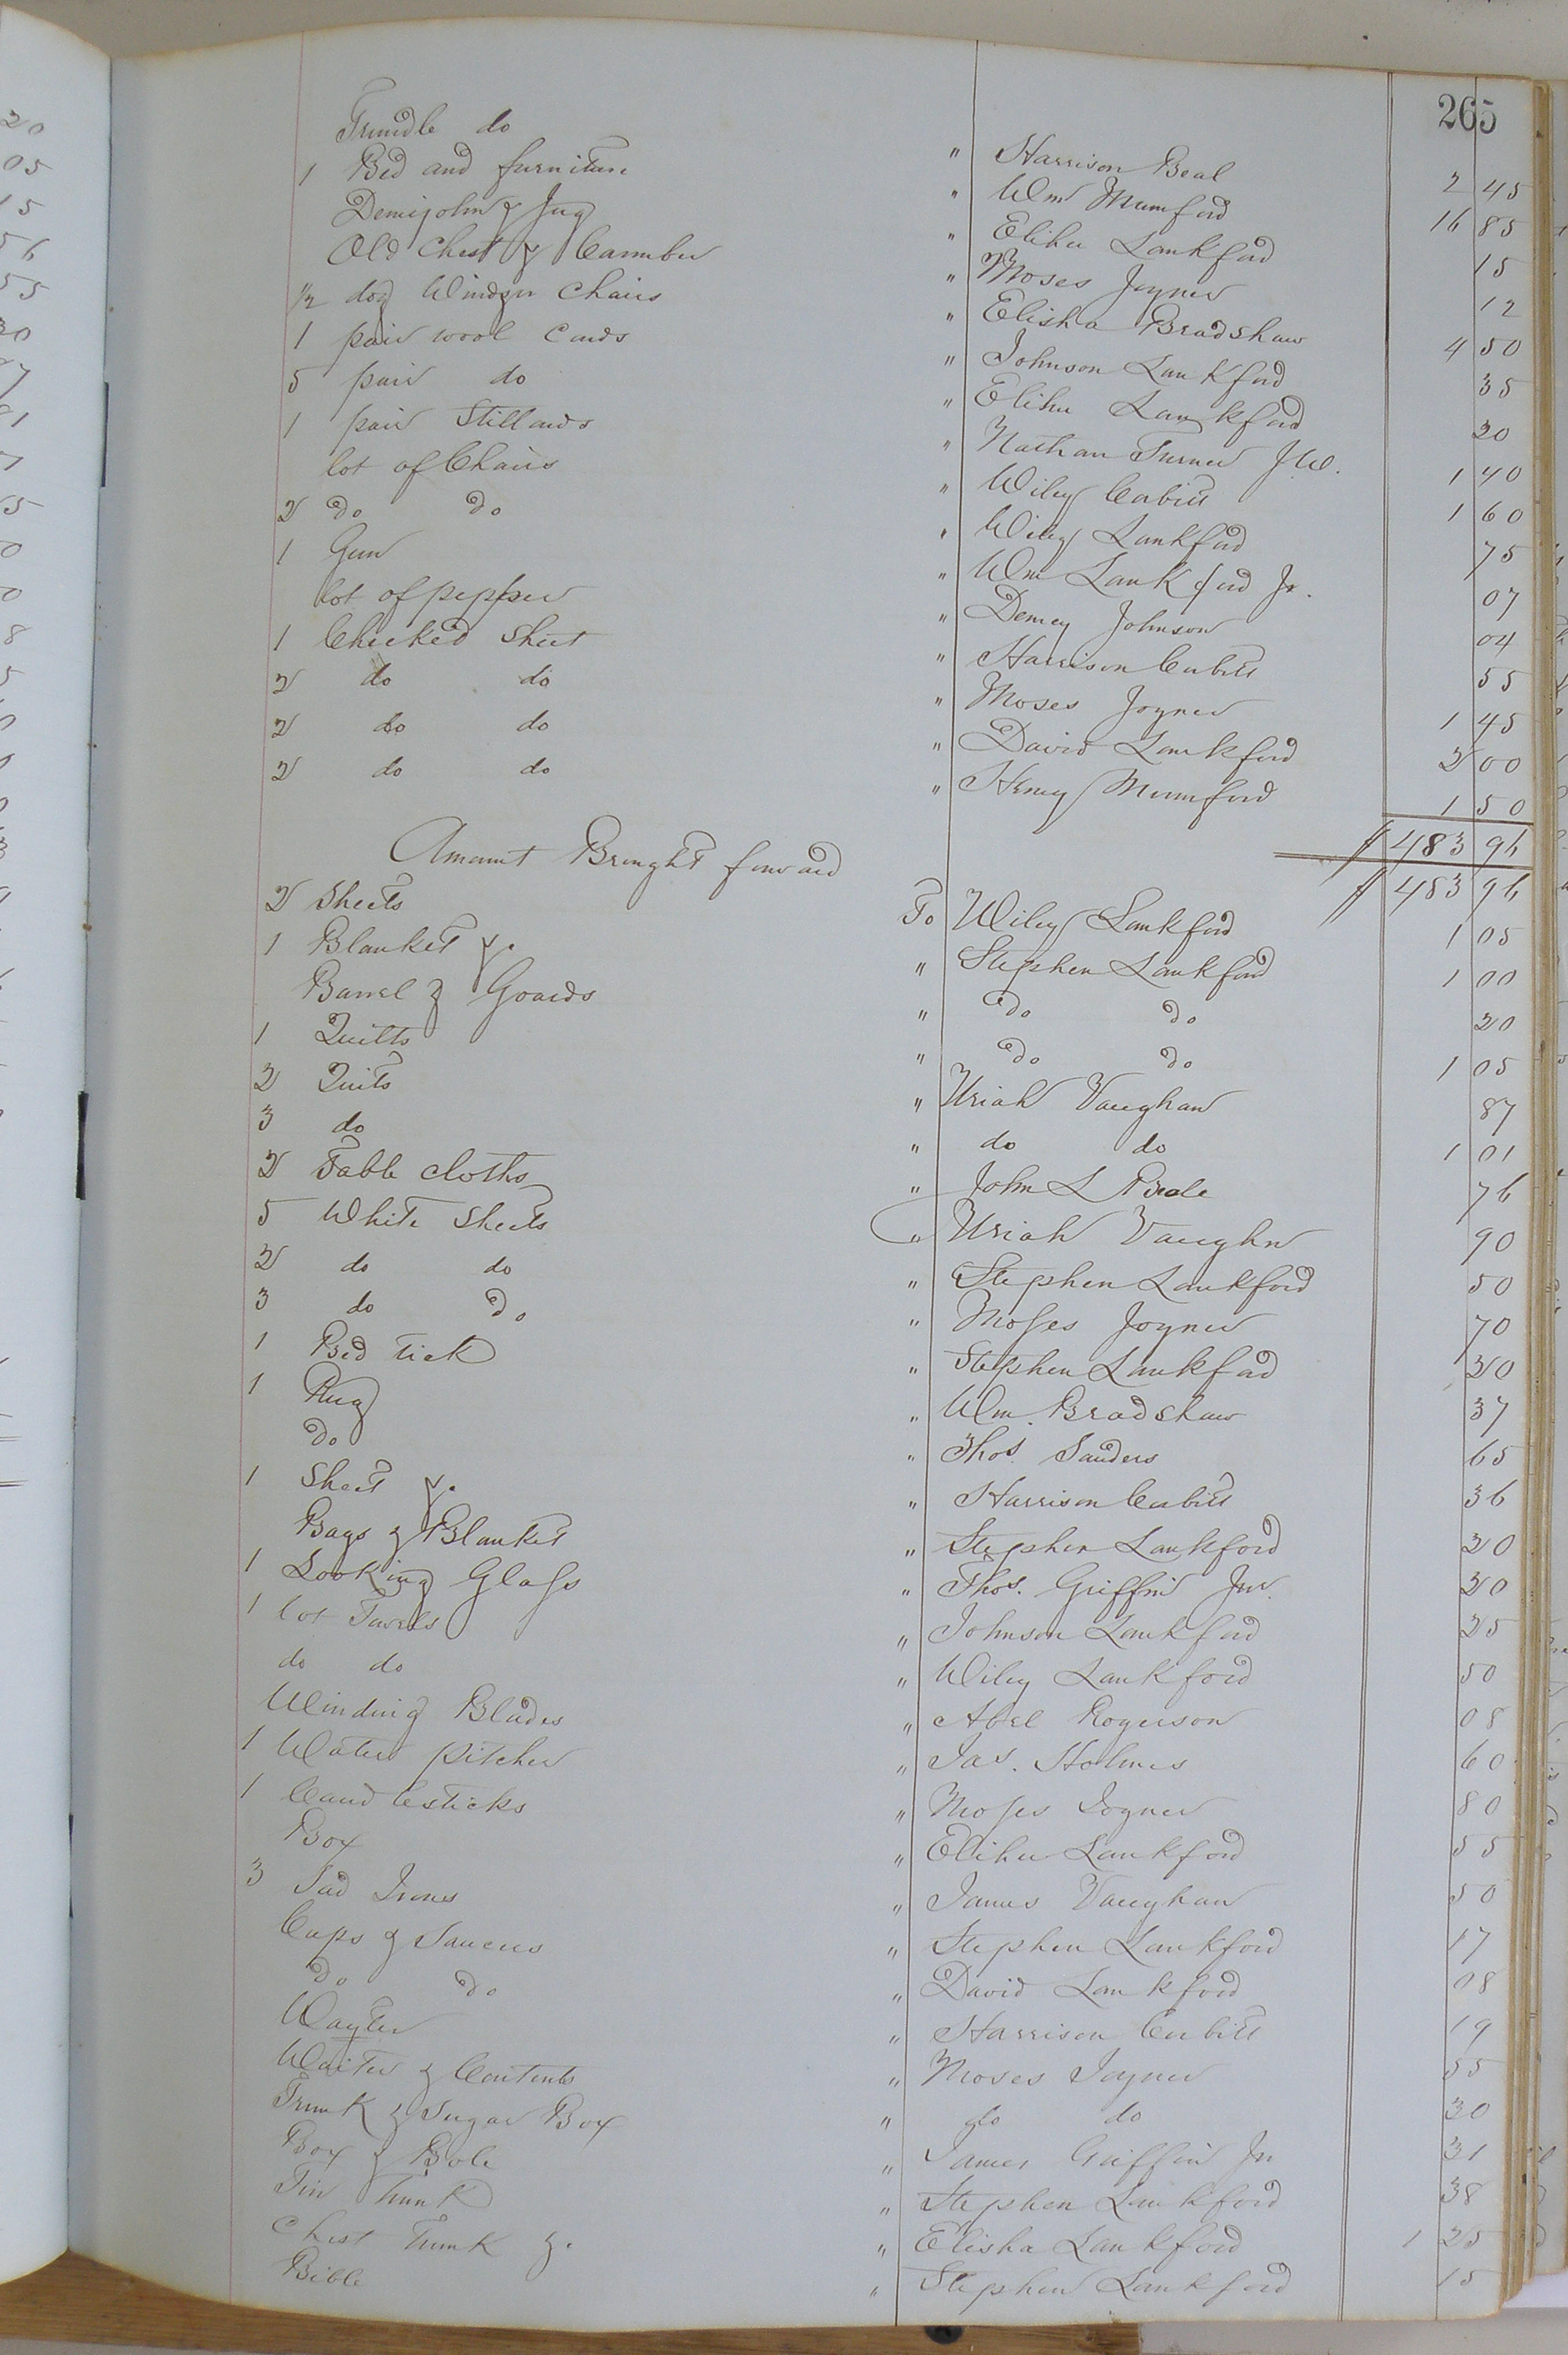 265
Trundle do " Harrison Beal 2 45
1 Bed and furniture " Wm Mumford 16 85
Demijohn & Jug " Elihu Lankford 15
Old Chest & " Moses Joyner 12
1/2 doz Windsor Chairs " Elisha Bradshaw 4 50
1 pair wool Cards " Johnson Lankford 35
5 pair do " Elihu Lankford 20
1 pair Stillards " Nathan Turner J.W. 1 40
lot of Chairs " Wiley Corbitt 1 60
2 Do Do " Wiley Lankford 75
1 Gun " Wm Lankford Jr. 07
lot of pepper " Demcy Johnson 04
1 Checked Sheet " Harrison Corbitt 55
2 do do " Moses Joyner 1 45
2 do do " David Lankford 2 00
2 do do " Henry Mumford 1 50
$ 483 96
Amount Brought forward $ 483 96
2 Sheets To Wiley Lankford 1 05
1 Blanket &c. " Stephen Lankford 1 00
Barrel & Goards " Do Do 20
1 Quilts " Do Do 1 05
2 Quits " Uriah Vaughan 87
3 do " do do 1 01
2 Table cloths " John L Beale 76
5 White Sheets " Uriah Vaughn 90
2 do do " Stephen Lankford 50
3 do Do " Moses Joyner 70
1 Bed tick " Stephen Lankford 20
1 Rug " Wm. Bradshaw 37
Do " Thos. Sanders 65
1 Sheet &c. " Harrison Corbitt 36
Bags & Blanket " Stephen Lankford 20
1 Looking Glass " Thos. Griffin Jnr. 20
1 lot Towels " Johnson Lankford 25
do do " Wiley Lankford 50
Winding Blades " Abel Rogerson 08
1 Water pitcher " Jas. Holmes 60
1 Candlesticks " Moses Joyner 80
Box " Elihu Lankford 55
3 Sad Irons " James Vaughan 50
Cups & Saucers " Stephen Lankford 17
Do Do " David Lankford 08
Wayter " Harrison Corbitt 19
Waiter & Contents " Moses Joyner 55
Trunk & Sugar Box " do do 30
Box & " James Griffin Jr 31
Tin Trunk " Stephen Lankford 38
Chest Trunk &c. " Elisha Lankford 1 25
Bible " Stephen Lankford 15